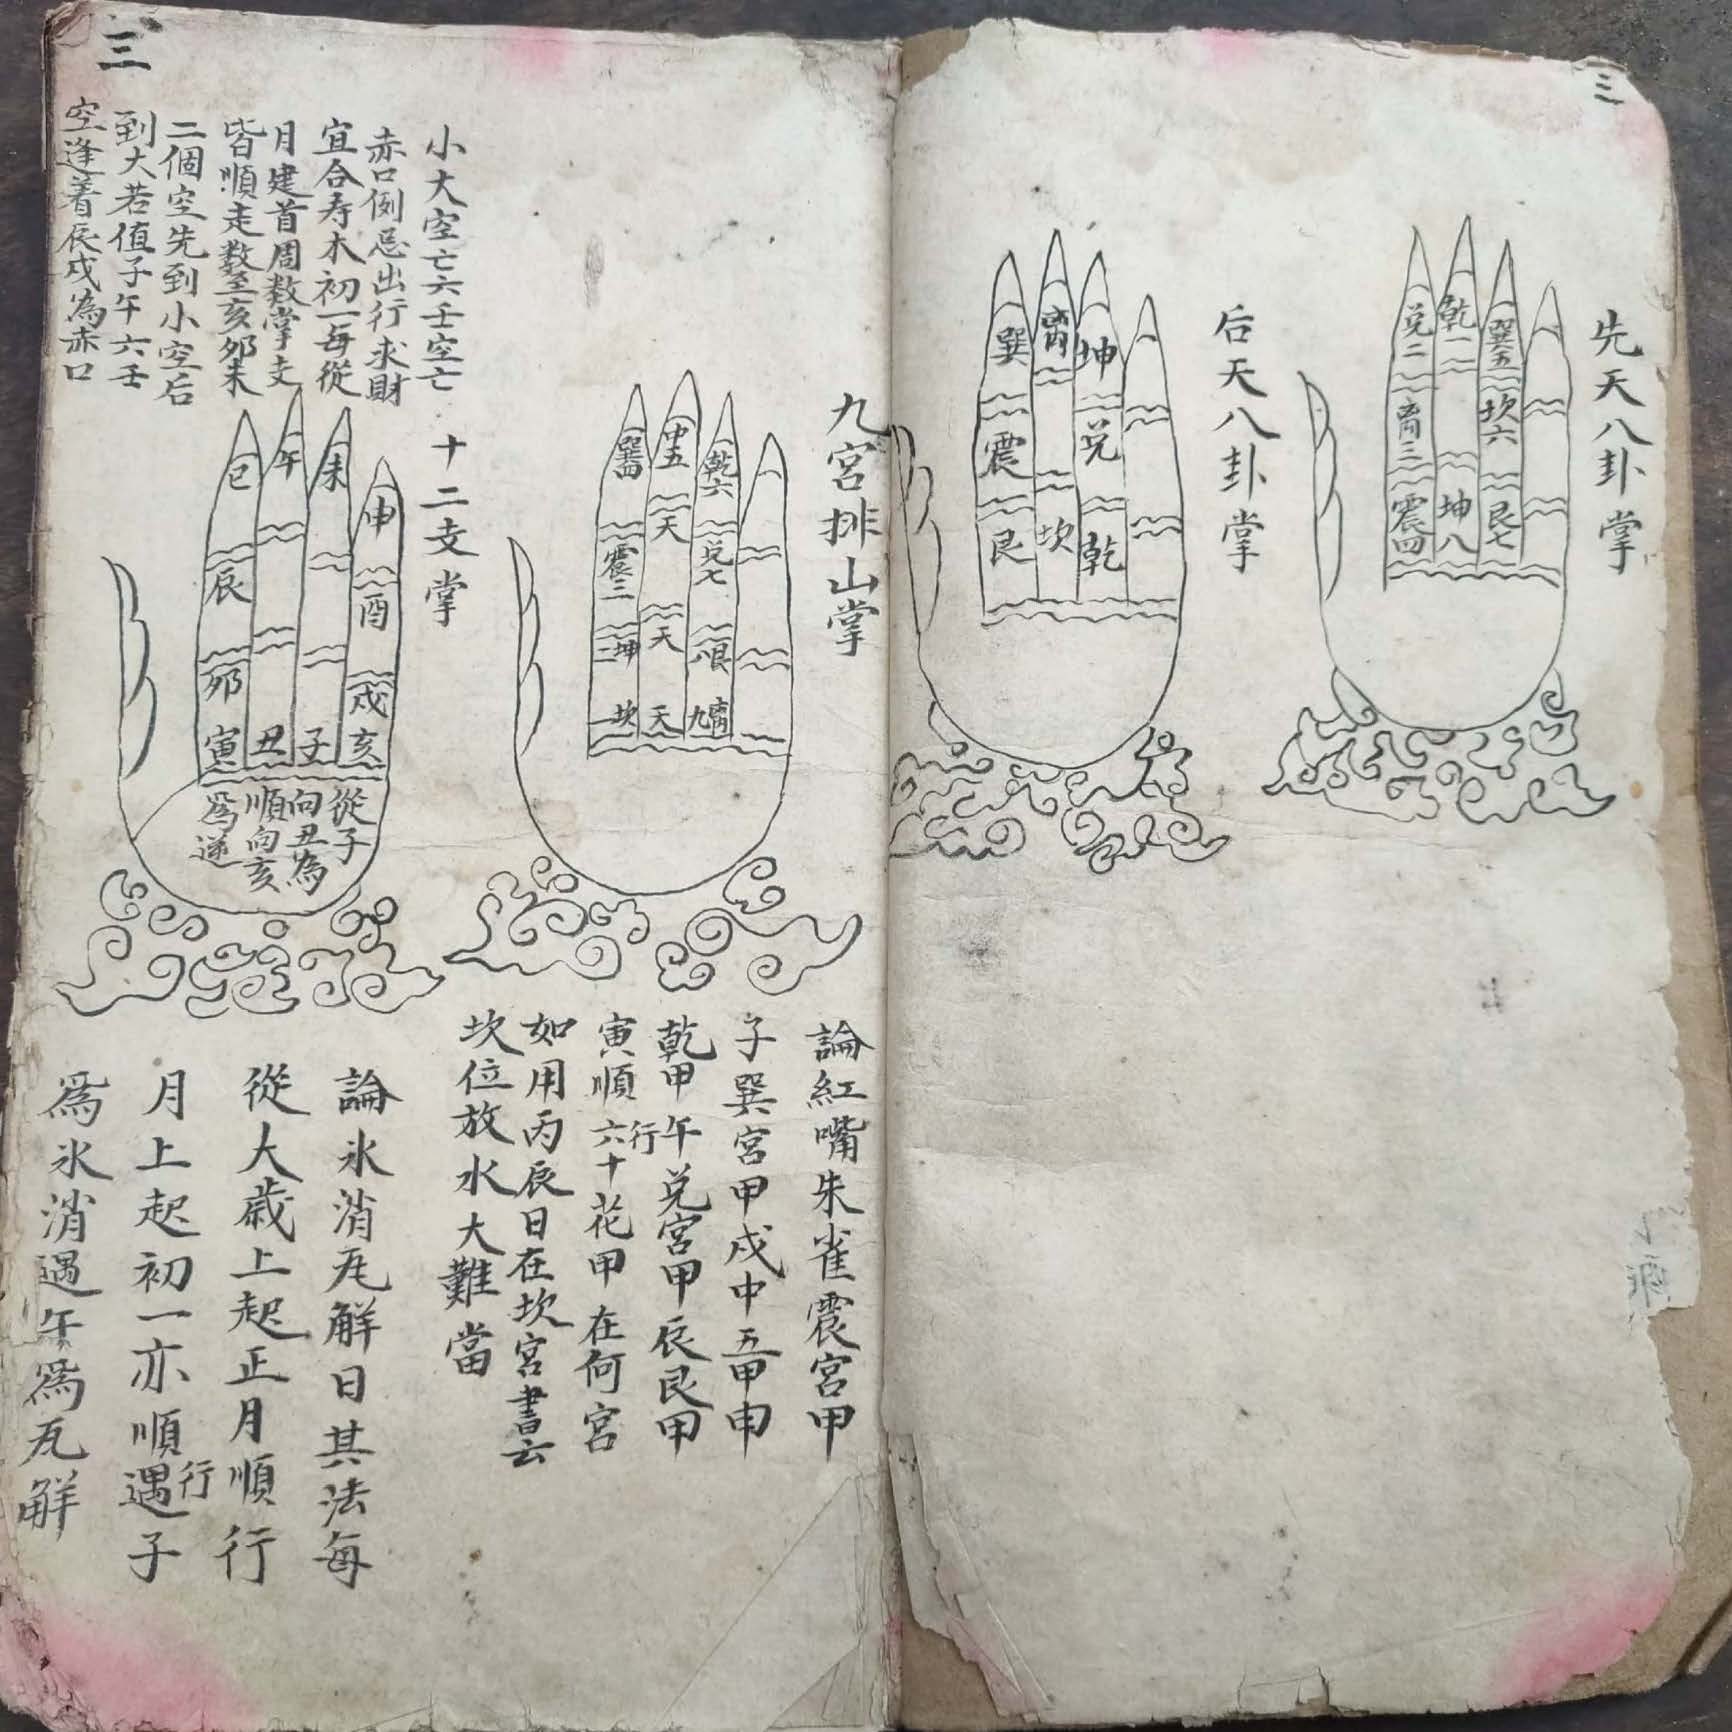 三
先天八卦掌
乾一
兌二
離三
震四
巽五
坎六
艮七
坤八
后天八卦掌
巽
離
坤
震
兌
艮
坎
乾
九宮排山掌
巽四
中五
乾六
天
震三
兌七
天
坤二
艮八
坎一
天
離九
論紅嘴朱雀震宮甲
子巽宮甲戌中五甲申
乾甲午兌宮甲辰艮甲
寅順行六十花甲在何宮
如用丙辰日在坎宮書云
坎位放水大難當
三
小大空亡六壬空亡
赤口例忌出行求財
宜合寿木初一每從
月建首周数掌支
皆順走数至亥夘未
二個空先到小空后
到大若值子午六壬
空逢着辰戌為赤口
十二支掌
巳
午
未
申
辰
酉
夘
戌
寅
丑
子
亥
從子
向丑為
順向亥
爲逆
論氷消瓦解日其法每
從大歲上起正月順行
月上起初一亦順行遇子
爲氷消遇午爲瓦解